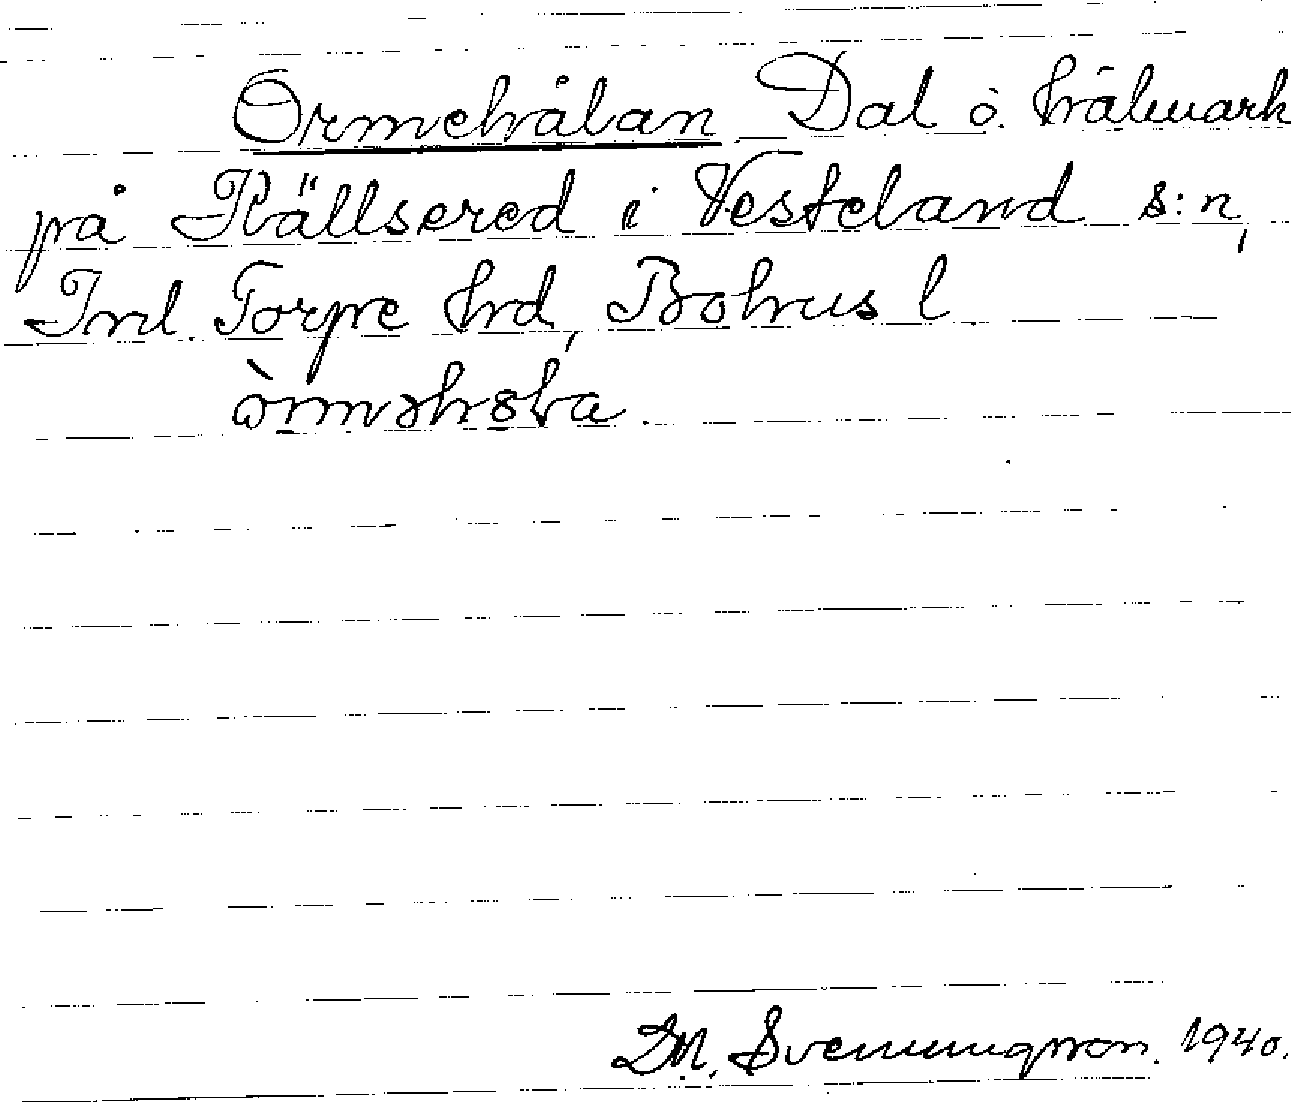 Ormehålan Dal o. hålmark
på Källsered i Vesteland s:n,
Inl. Torpe hrd, Bohus l
Dm. Svenungsson. 1940.